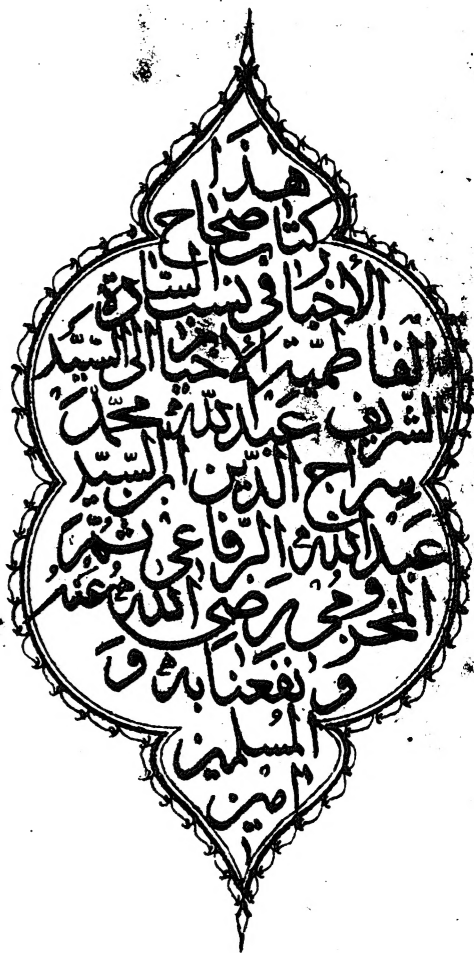 هٰذَا
كتاب صحاح
الأخبار فى نسب السادة
الفاطمية الأخيار الى السَّيِّد
الشريف عبد الله محمَّد
سراج الدّين ابن السيِّد
عَبد الله الرّفاعى ثُمَّ
المخزومى رضى الله عنه
وَنفعنا به وَ
المُسلمين
امين